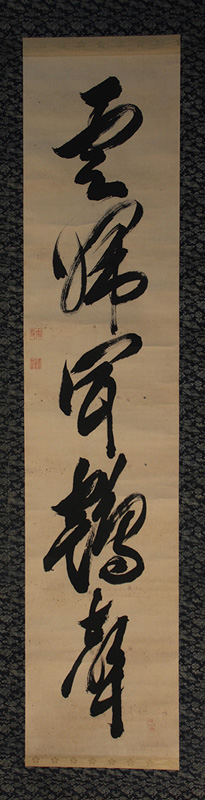 雲歸聞鶴聲